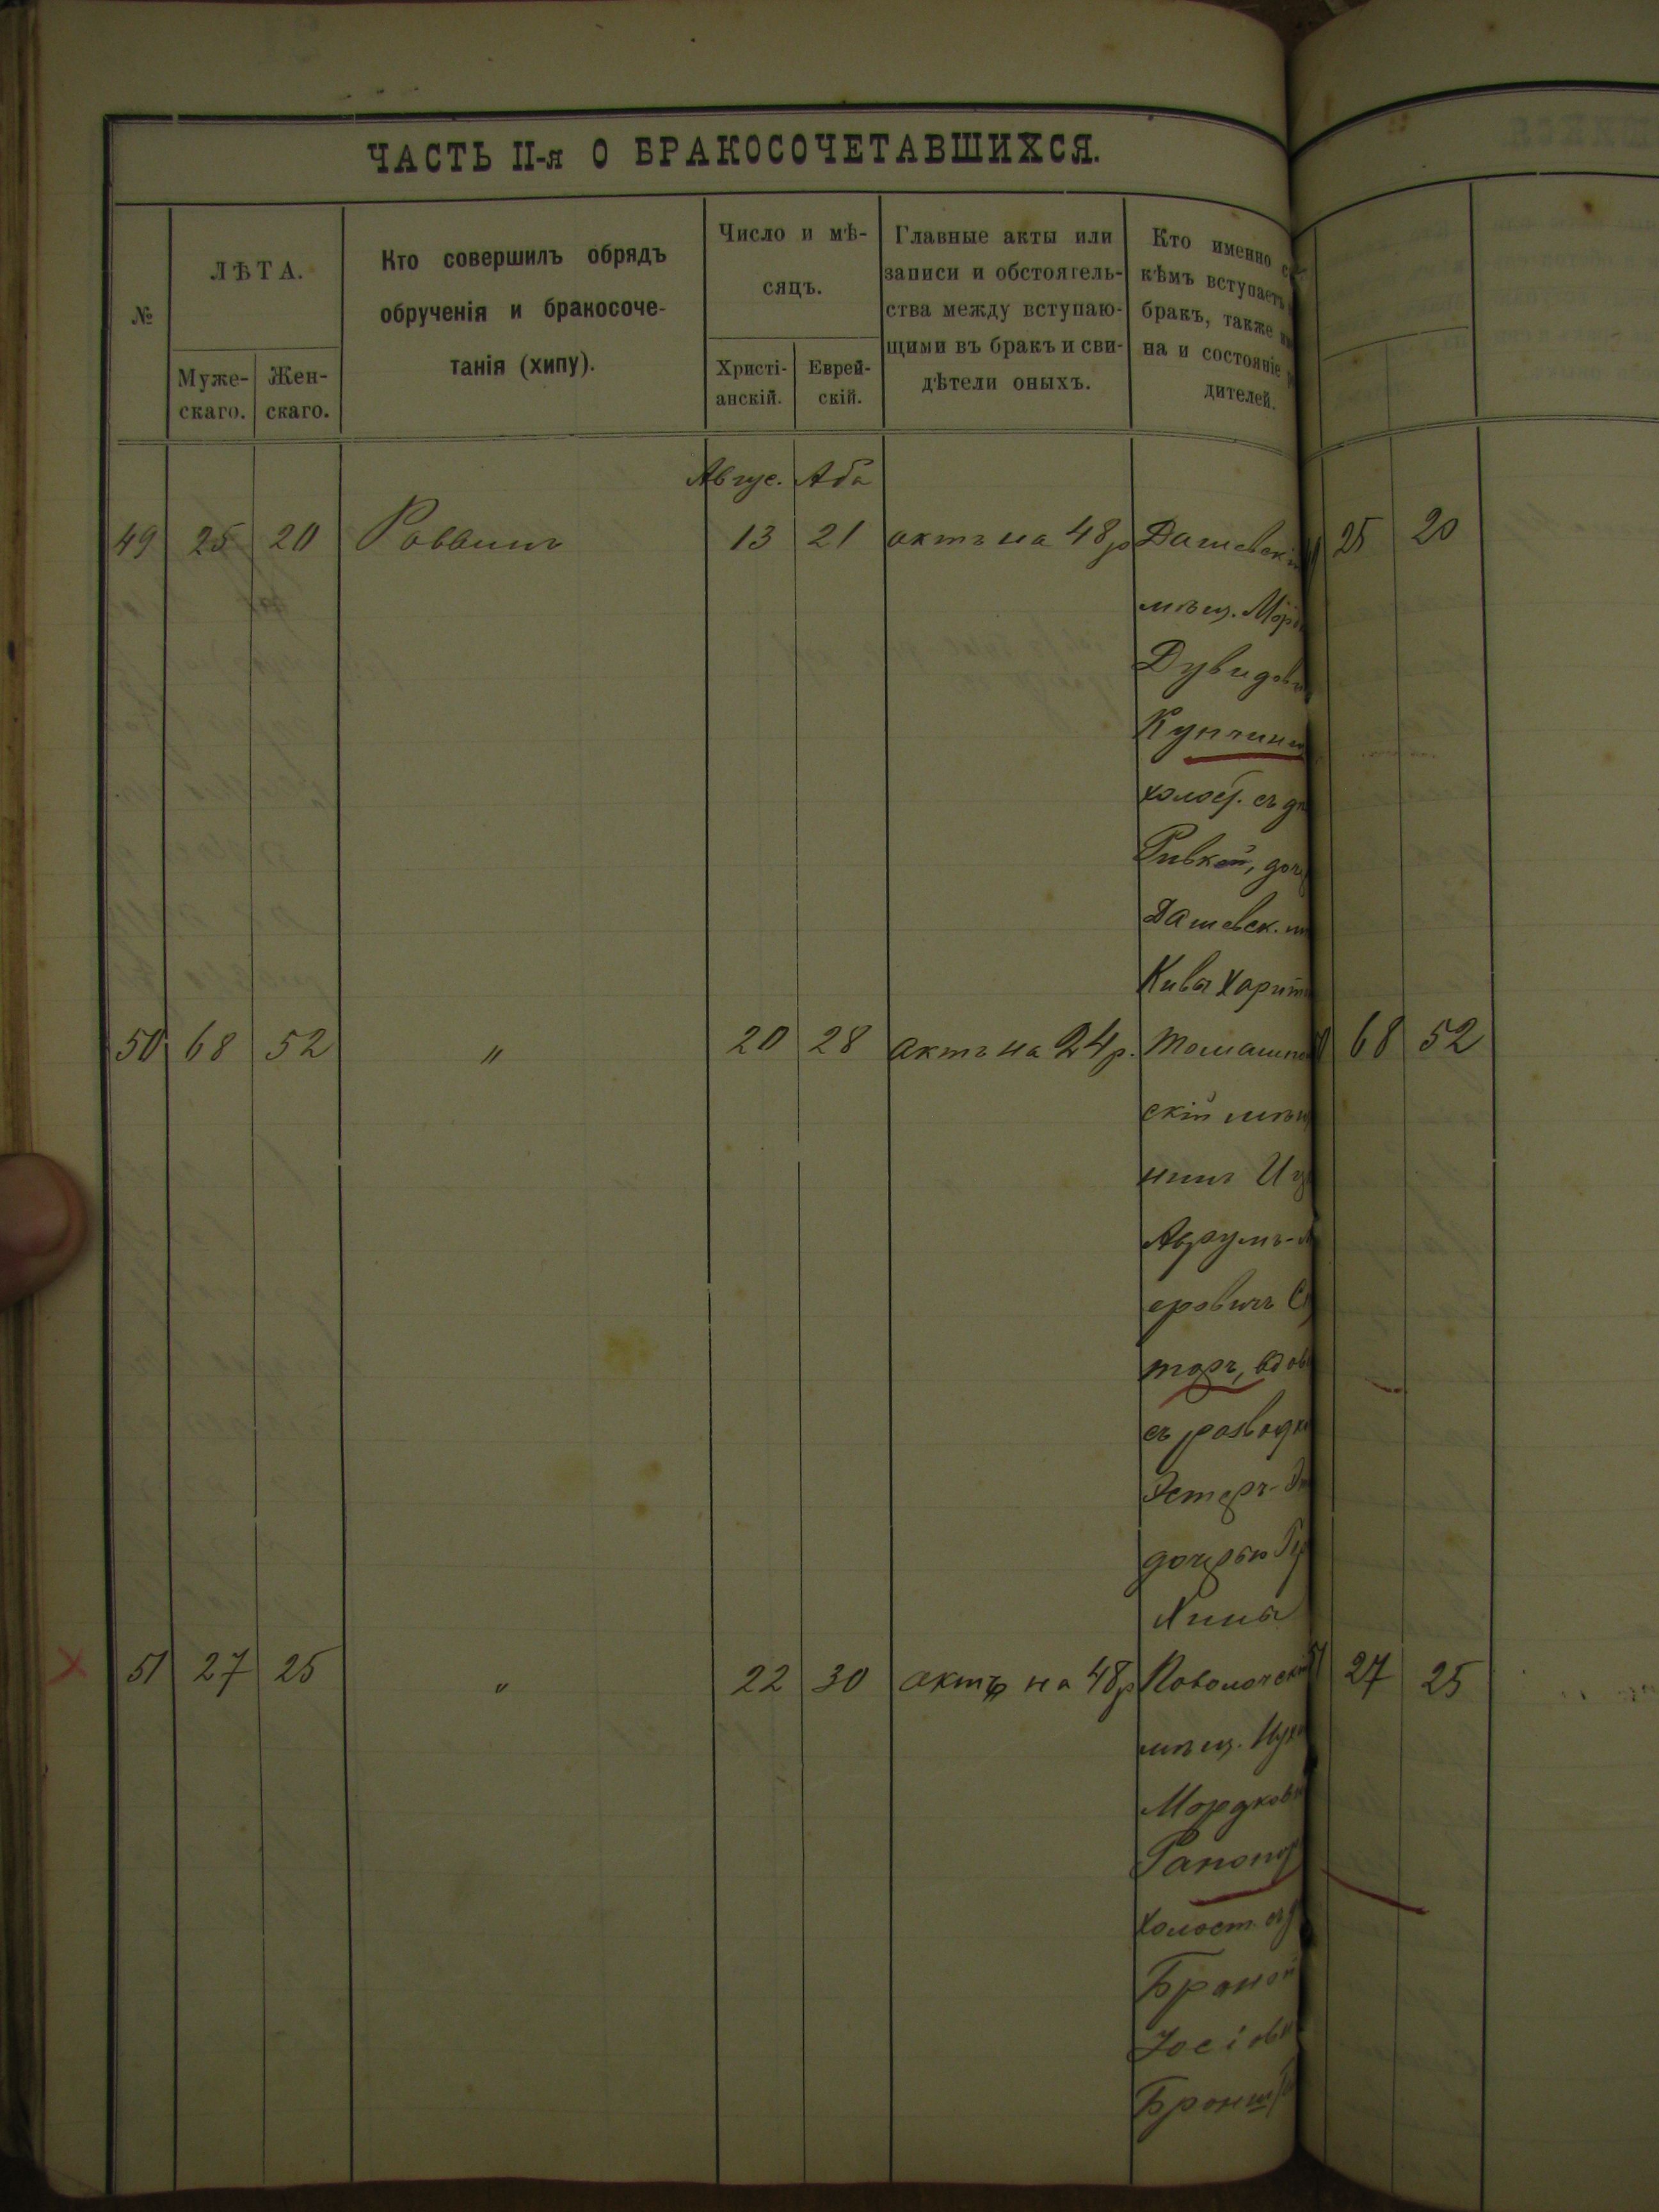 ЧАСТЬ II-я О БРАКОСОЧЕТАВШИХСЯ.
№
ЛѢТА.
Муже-
скаго.
Жен-
скаго.
Кто совершилъ обрядъ
обрученія и бракосоче-
танія (хипу).
Число и мѣ-
сяцъ.
Христі-
анскій.
Еврей-
скій.
Главные акты или
записи и обстоятель-
ства между вступаю-
щими въ бракъ и сви-
дѣтели оныхъ.
Кто именно
кѣмъ вступаетъ
бракъ, также
на и состояніе
дителей.
Авгус. Аба
49 25 20 Раввинъ 13 21 актъ на 48 р Дашевскій 25 20
мѣщ.
Дувидов
Купчик
холост. съ
Ривкой, доч
Дашевск.
Кивы Харит
50 68 52 " 20 28 актъ на 24 р. Томашпол 68 52
скій мѣщ
нинъ
Аврумъ-
еровичъ
торъ, вдов
съ развод
Эстеръ-
дочерью
51 27 25 " 22 30 актъ на 48 р 51 27 25
мѣщ.
Мордков
Рапопор
холост. съ
Браной
Іосіов
Бронш